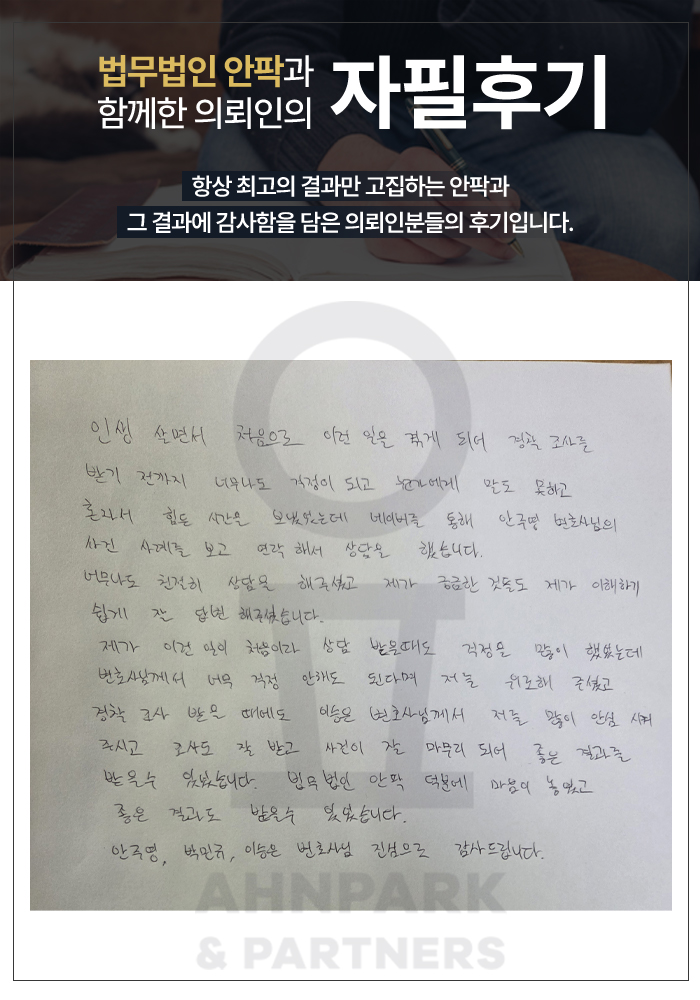 법무법인 안팍과
함께한 의뢰인의
자필후기
항상 최고의 결과만 고집하는 안팍과
그 결과에 감사함을 담은 의뢰인분들의 후기입니다.
인생 살면서 처음으로 이런 일을 겪게 되어 경찰 조사를
받기 전까지 너무나도 걱정이 되고 누군가에게 말도 못하고
혼자서 힘든 시간을 보냈었는데 네이버를 통해 안주영 변호사님의
사건 사례를 보고 연락해서 상담을 했습니다.
너무나도 친절히 상담을 해주셨고 제가 궁금한 것들도 제가 이해하기
쉽게 잘 답변 해주셨습니다.
제가 이런 일이 처음이라 상담 받을때도 걱정을 많이 했었는데
변호사님께서 너무 걱정 안해도 된다며 저를 위로해 주셨고
경찰 조사 받을 때에도 이승은 변호사님께서 저를 많이 안심 시켜
주시고 조사도 잘 받고 사건이 잘 마무리 되어 좋은 결과를
받을수 있었습니다. 법무법인 안팍 덕분에 마음이 놓였고
좋은 결과도 받을수 있었습니다.
안주영, 박민규, 이승은 변호사님 진심으로 감사드립니다.
AHNPARK
& PARTNERS